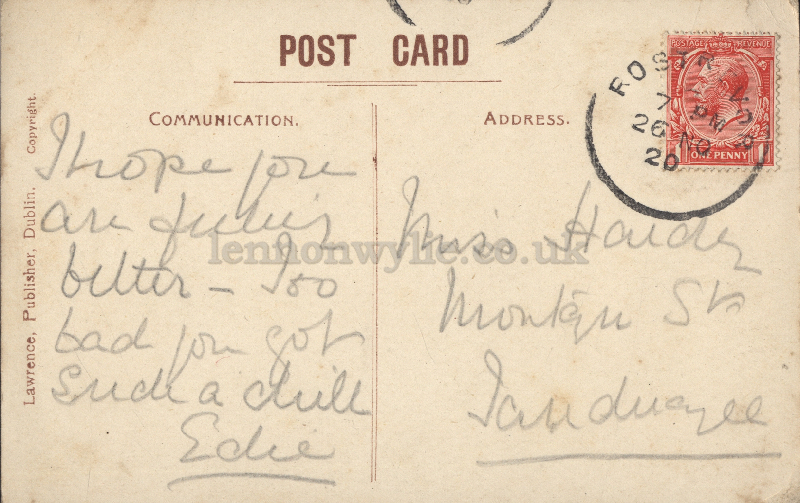 POST CARD
COMMUNICATION.
ADDRESS.
Lawrence, Publisher, Dublin. Copyright.
I hope you
are feeling
better – Too
bad you got
such a chill
Edie
Miss Hardy
St
Tandragee
POSTAGE REVENUE
ONE PENNY
7 PM
26 NO
20
lennonwylie.co.uk